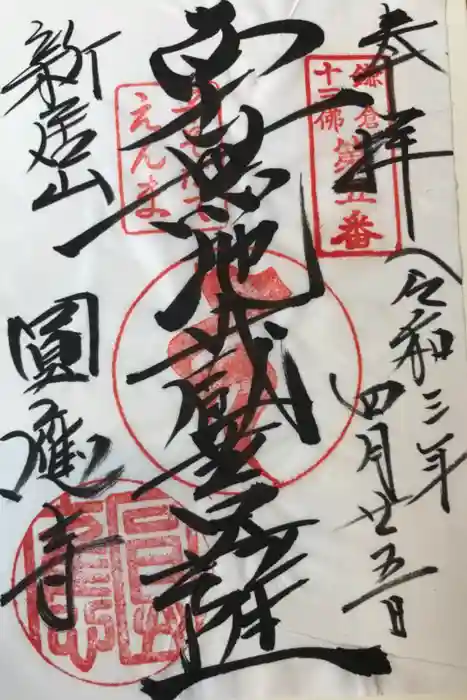 奉拝
令和三年四月廿五日
鎌倉
十三佛
第五番
えんま
地蔵
菩薩
新居山
圓應寺